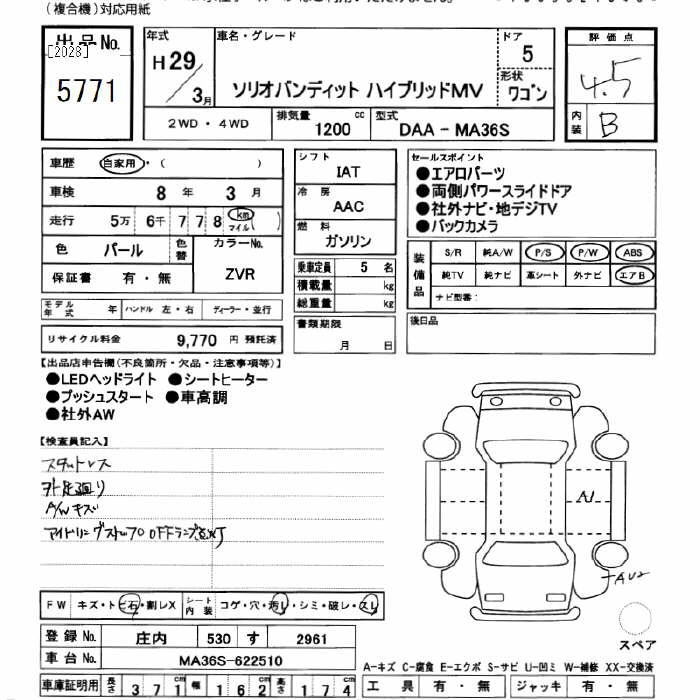 (複合機)対応用紙
出品No.
[2028]
5771
年式
H 29 / 3月
車名・グレード
ソリオバンディット ハイブリッドMV
ドア
5
形状
ワゴン
評価点
4.5
内装
B
2WD・4WD
排気量
1200 cc
型式
DAA - MA36S
車歴 自家用・( )
車検 8 年 3 月
走行 5万 6千 7 7 8 km マイル ( )
色 パール 色替 カラーNo.
ZVR
保証書 有・無
モデル年式 年 ハンドル 左・右 ディーラー・並行
リサイクル料金 9,770 円 預託済
シフト
IAT
冷房
AAC
燃料
ガソリン
乗車定員 5 名
積載量 kg
総重量 kg
書類期限
月 日
セールスポイント
●エアロパーツ
●両側パワースライドドア
●社外ナビ・地デジTV
●バックカメラ
装備品
S/R 純A/W P/S P/W ABS
純TV 純ナビ 革シート 外ナビ エアB
ナビ型番:
後日品
【出品店申告欄(不良箇所・欠品・注意事項等)】
●LEDヘッドライト ●シートヒーター
●プッシュスタート ●車高調
●社外AW
【検査員記入】
スタットレス
外足廻り
A/Wキズ
アイドリングストップOFFランプ点灯
A1
AU2
FW キズ・トビ石・割レX シート内装 コゲ・穴・汚レ・シミ・破レ・スレ
登録No. 庄内 530 す 2961
車台No. MA36S-622510
スペア
A-キズ C-腐食 E-エクボ S-サビ U-凹ミ W-補修 XX-交換済
車庫証明用 長さ 3 7 1 幅 1 6 2 高さ 1 7 4
工具 有・無 ジャッキ 有・無